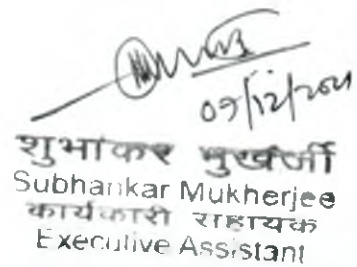 09/12/2021
शुभांकर मुखर्जी
Subhankar Mukherjee
कार्यकारी सहायक
Executive Assistant